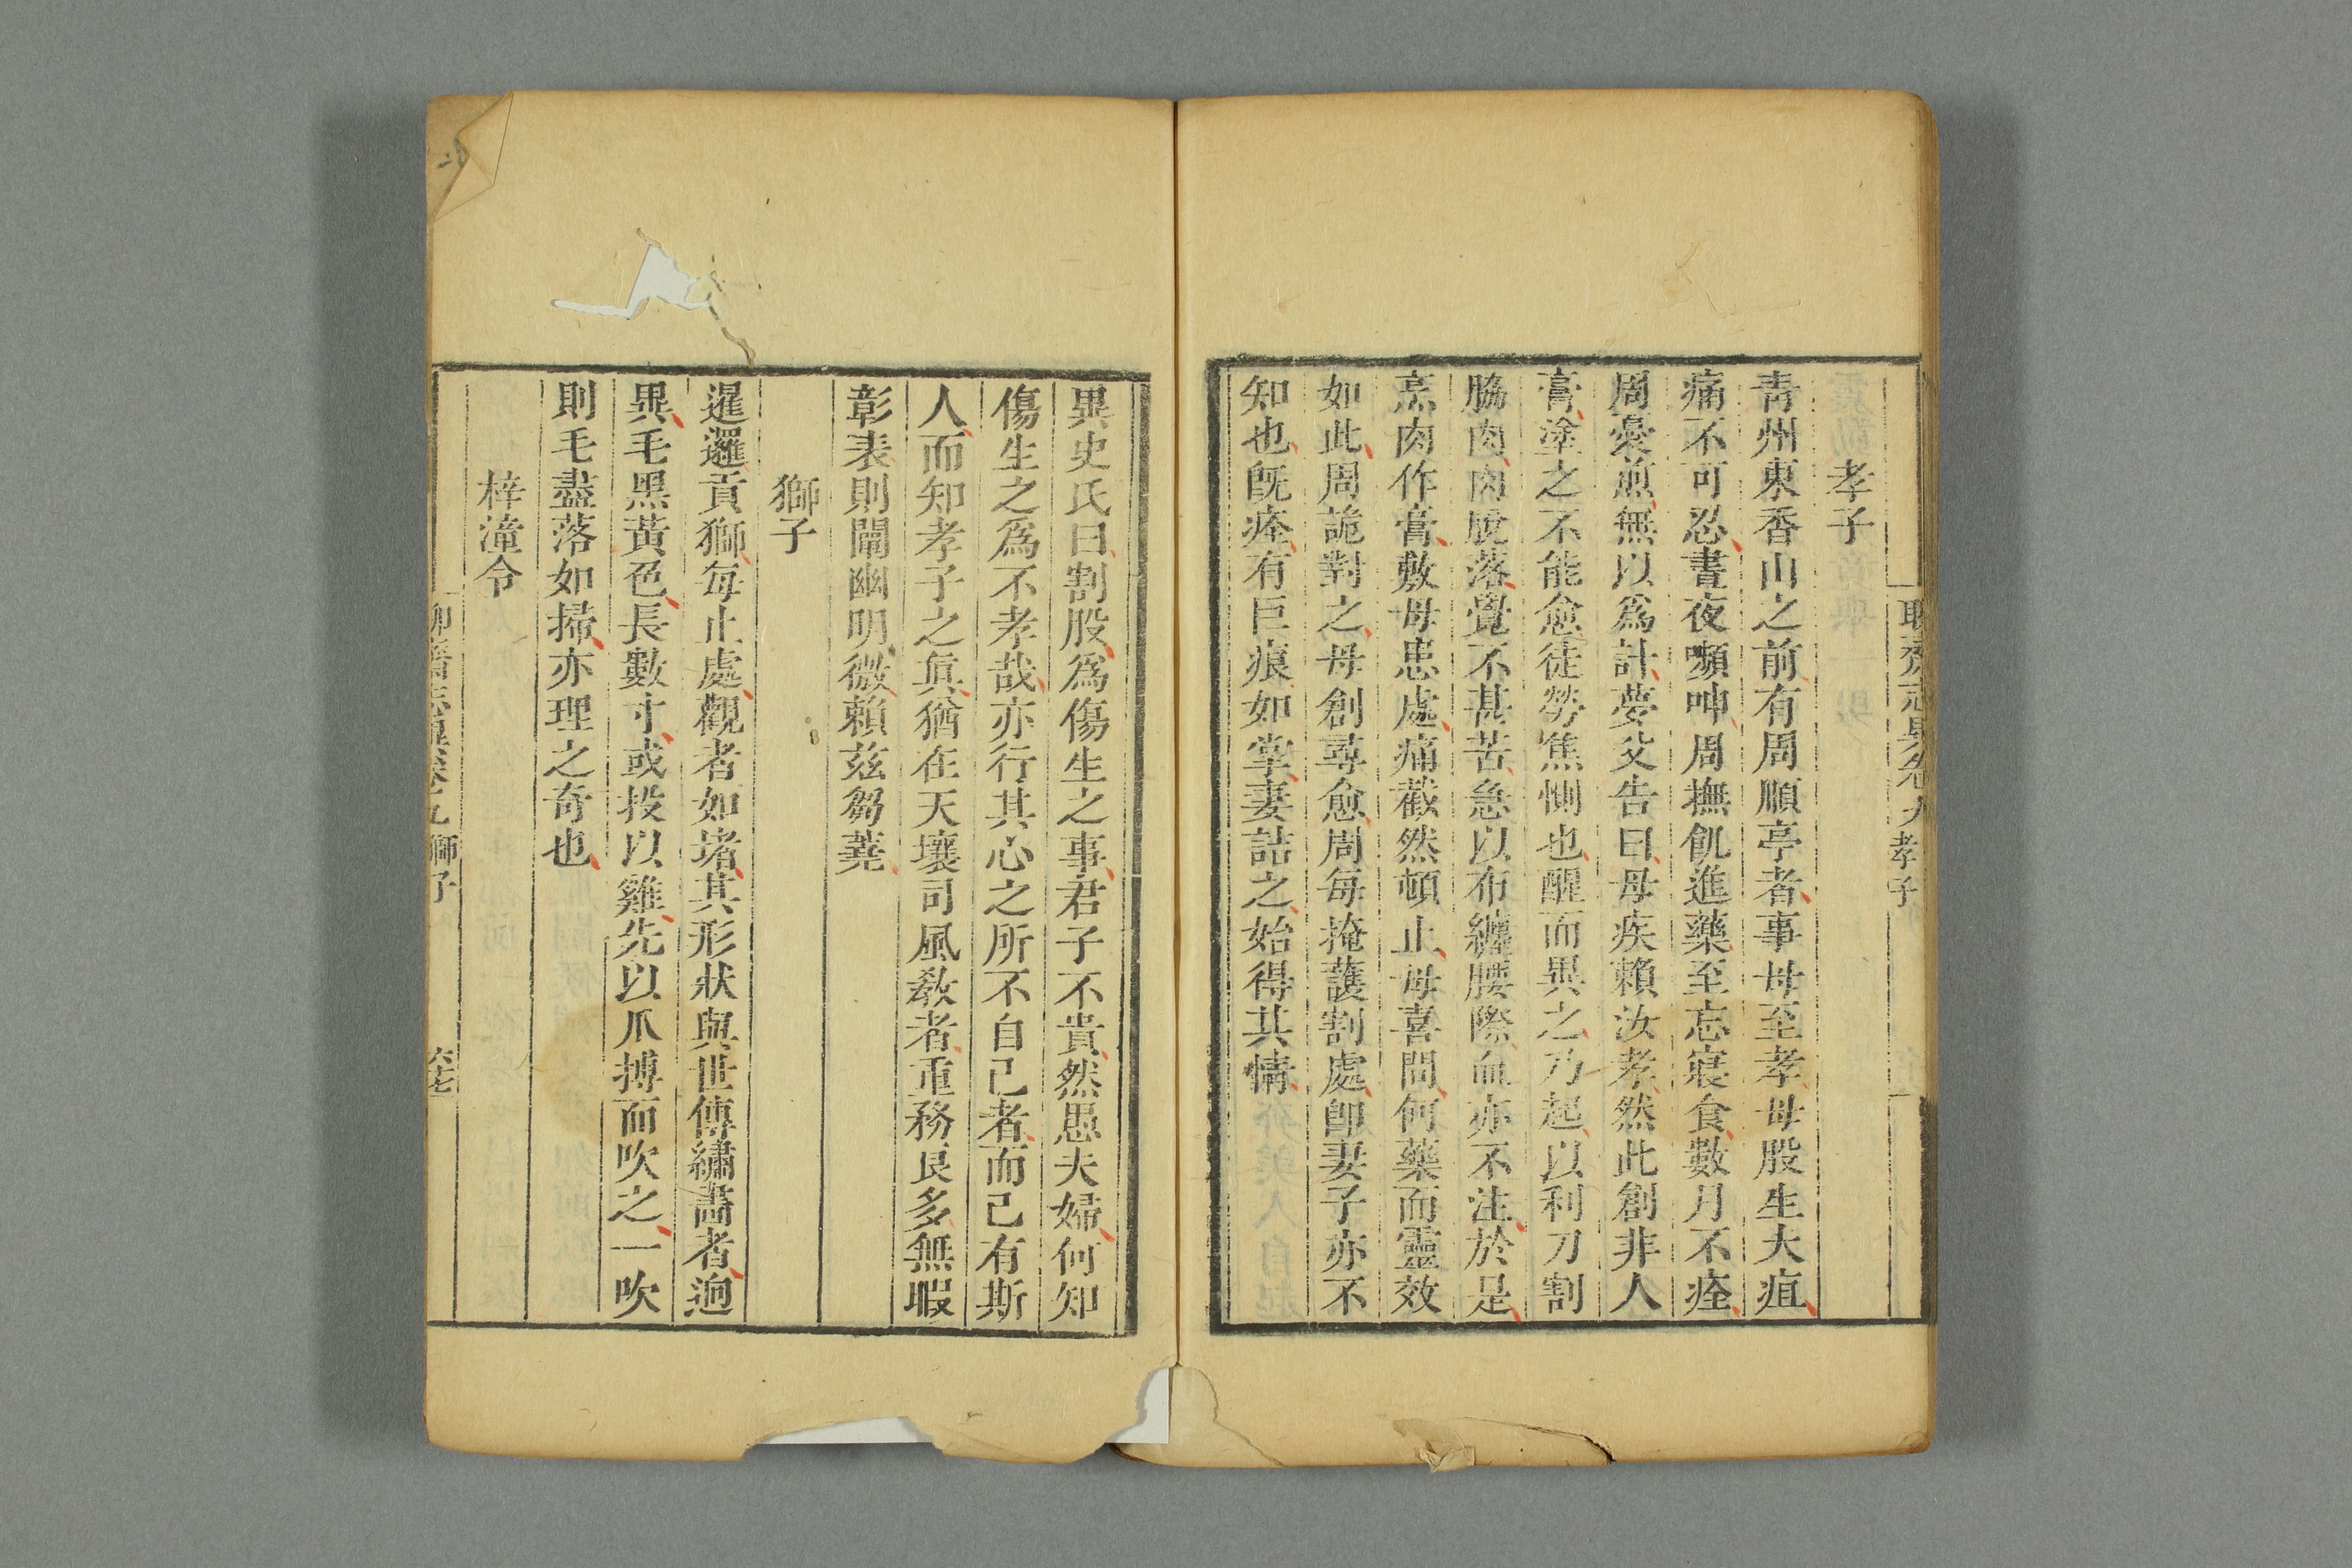 聊齋志異卷九 孝子
孝子
靑州東香山之前有周順亭者事母至孝母股生大疽
痛不可忍晝夜嚬呻周撫飢進藥至忘寢食數月不痊
周憂煎無以爲計夢父告曰母疾賴汝孝然此創非人
膏塗之不能愈徒勞焦惻也醒而異之乃起以利刀割
脇肉肉脫落覺不甚苦急以布纏腰際血亦不注於是
烹肉作膏敷母患處痛截然頓止母喜問何藥而靈效
如此周詭對之母創尋愈周每掩護割處卽妻子亦不
知也旣痊有巨痕如掌妻詰之始得其情
異史氏曰割股爲傷生之事君子不貴然愚夫婦何知
傷生之爲不孝哉亦行其心之所不自已者而已有斯
人而知孝子之眞猶在天壤司風敎者重務良多無暇
彰表則闡幽明微賴玆芻蕘
獅子
暹邏貢獅每止處觀者如堵其形狀與世傳繡畵者逈
異毛黑黃色長數寸或投以雞先以爪摶而吹之一吹
則毛盡落如掃亦理之奇也
梓潼令
聊齋志異卷九 獅子 六七